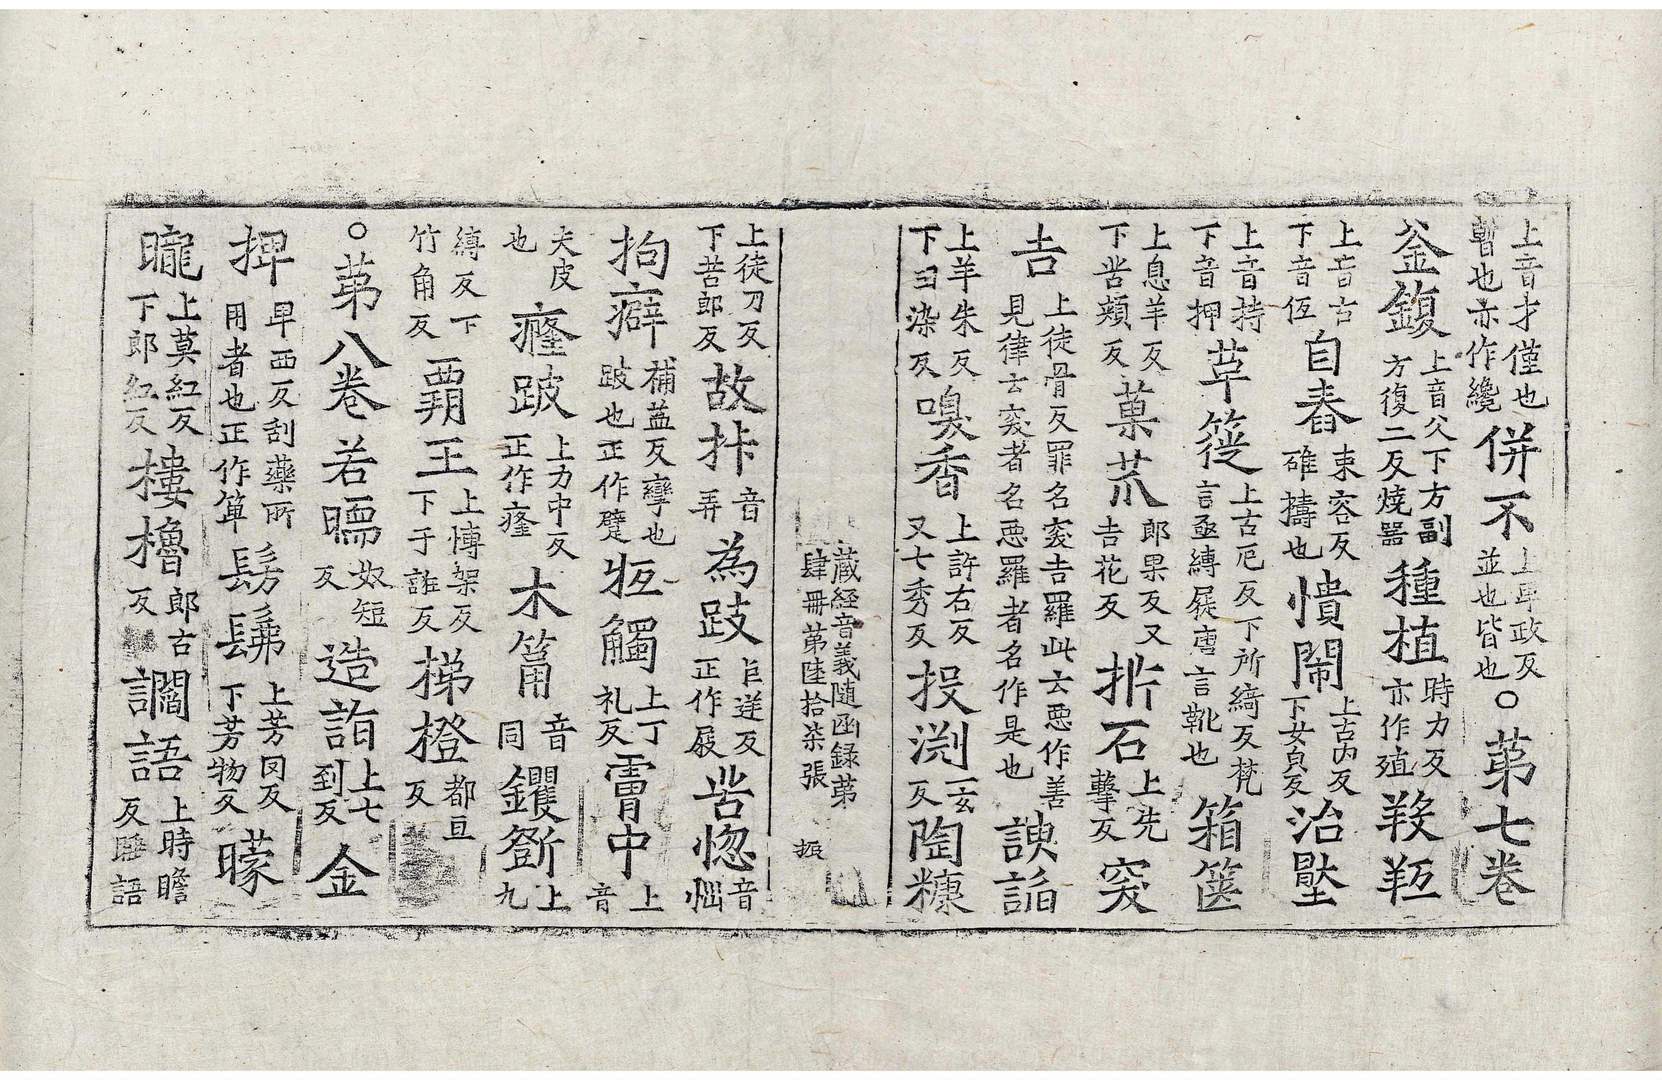 上音才僅也暫也亦作纔併不上卑政反並也皆也○苐七卷
釡鍑上音父下方副方復二反燒器種植時力反亦作殖羖羥
上音古下音仾自舂束容反碓擣也憒閙上古內反下女皃反治壂
上音持下音押草簁上古厄反下所綺反梵言亟縛屣唐言靴也箱篋
上息羊反下苦頰反菓蓏郎果反又吉花反㪿石上先擊反突
吉上徒骨反罪名突吉羅此云惡作善見律云突者名惡羅者名作是也諛諂
上羊朱反下曰染反嗅香上許右反又七秀反投渕一玄反陶糠
藏經音義隨函録苐肆冊苐陸拾柒張 振
上徒刀反下苦郎反故挊音弄為跂巨逆反正作屐茍惚音惱
拘癖補益反孿也跛也正作躄牴觸上丁礼反霤中上音
夫皮也癃跛上力中反正作癃木䈰音同钁斵上九
縛反下竹角反覇王上博架反下于誰反梯橙都亘反
○苐八卷若㬉奴短反造詣上七到反金
捭早西反刮藥所用者也正作箄髣髴上芳罔反下芳物反矇
矓上莫紅反下郎紅反樓櫓郎古反讇語上時瞻反䜓語